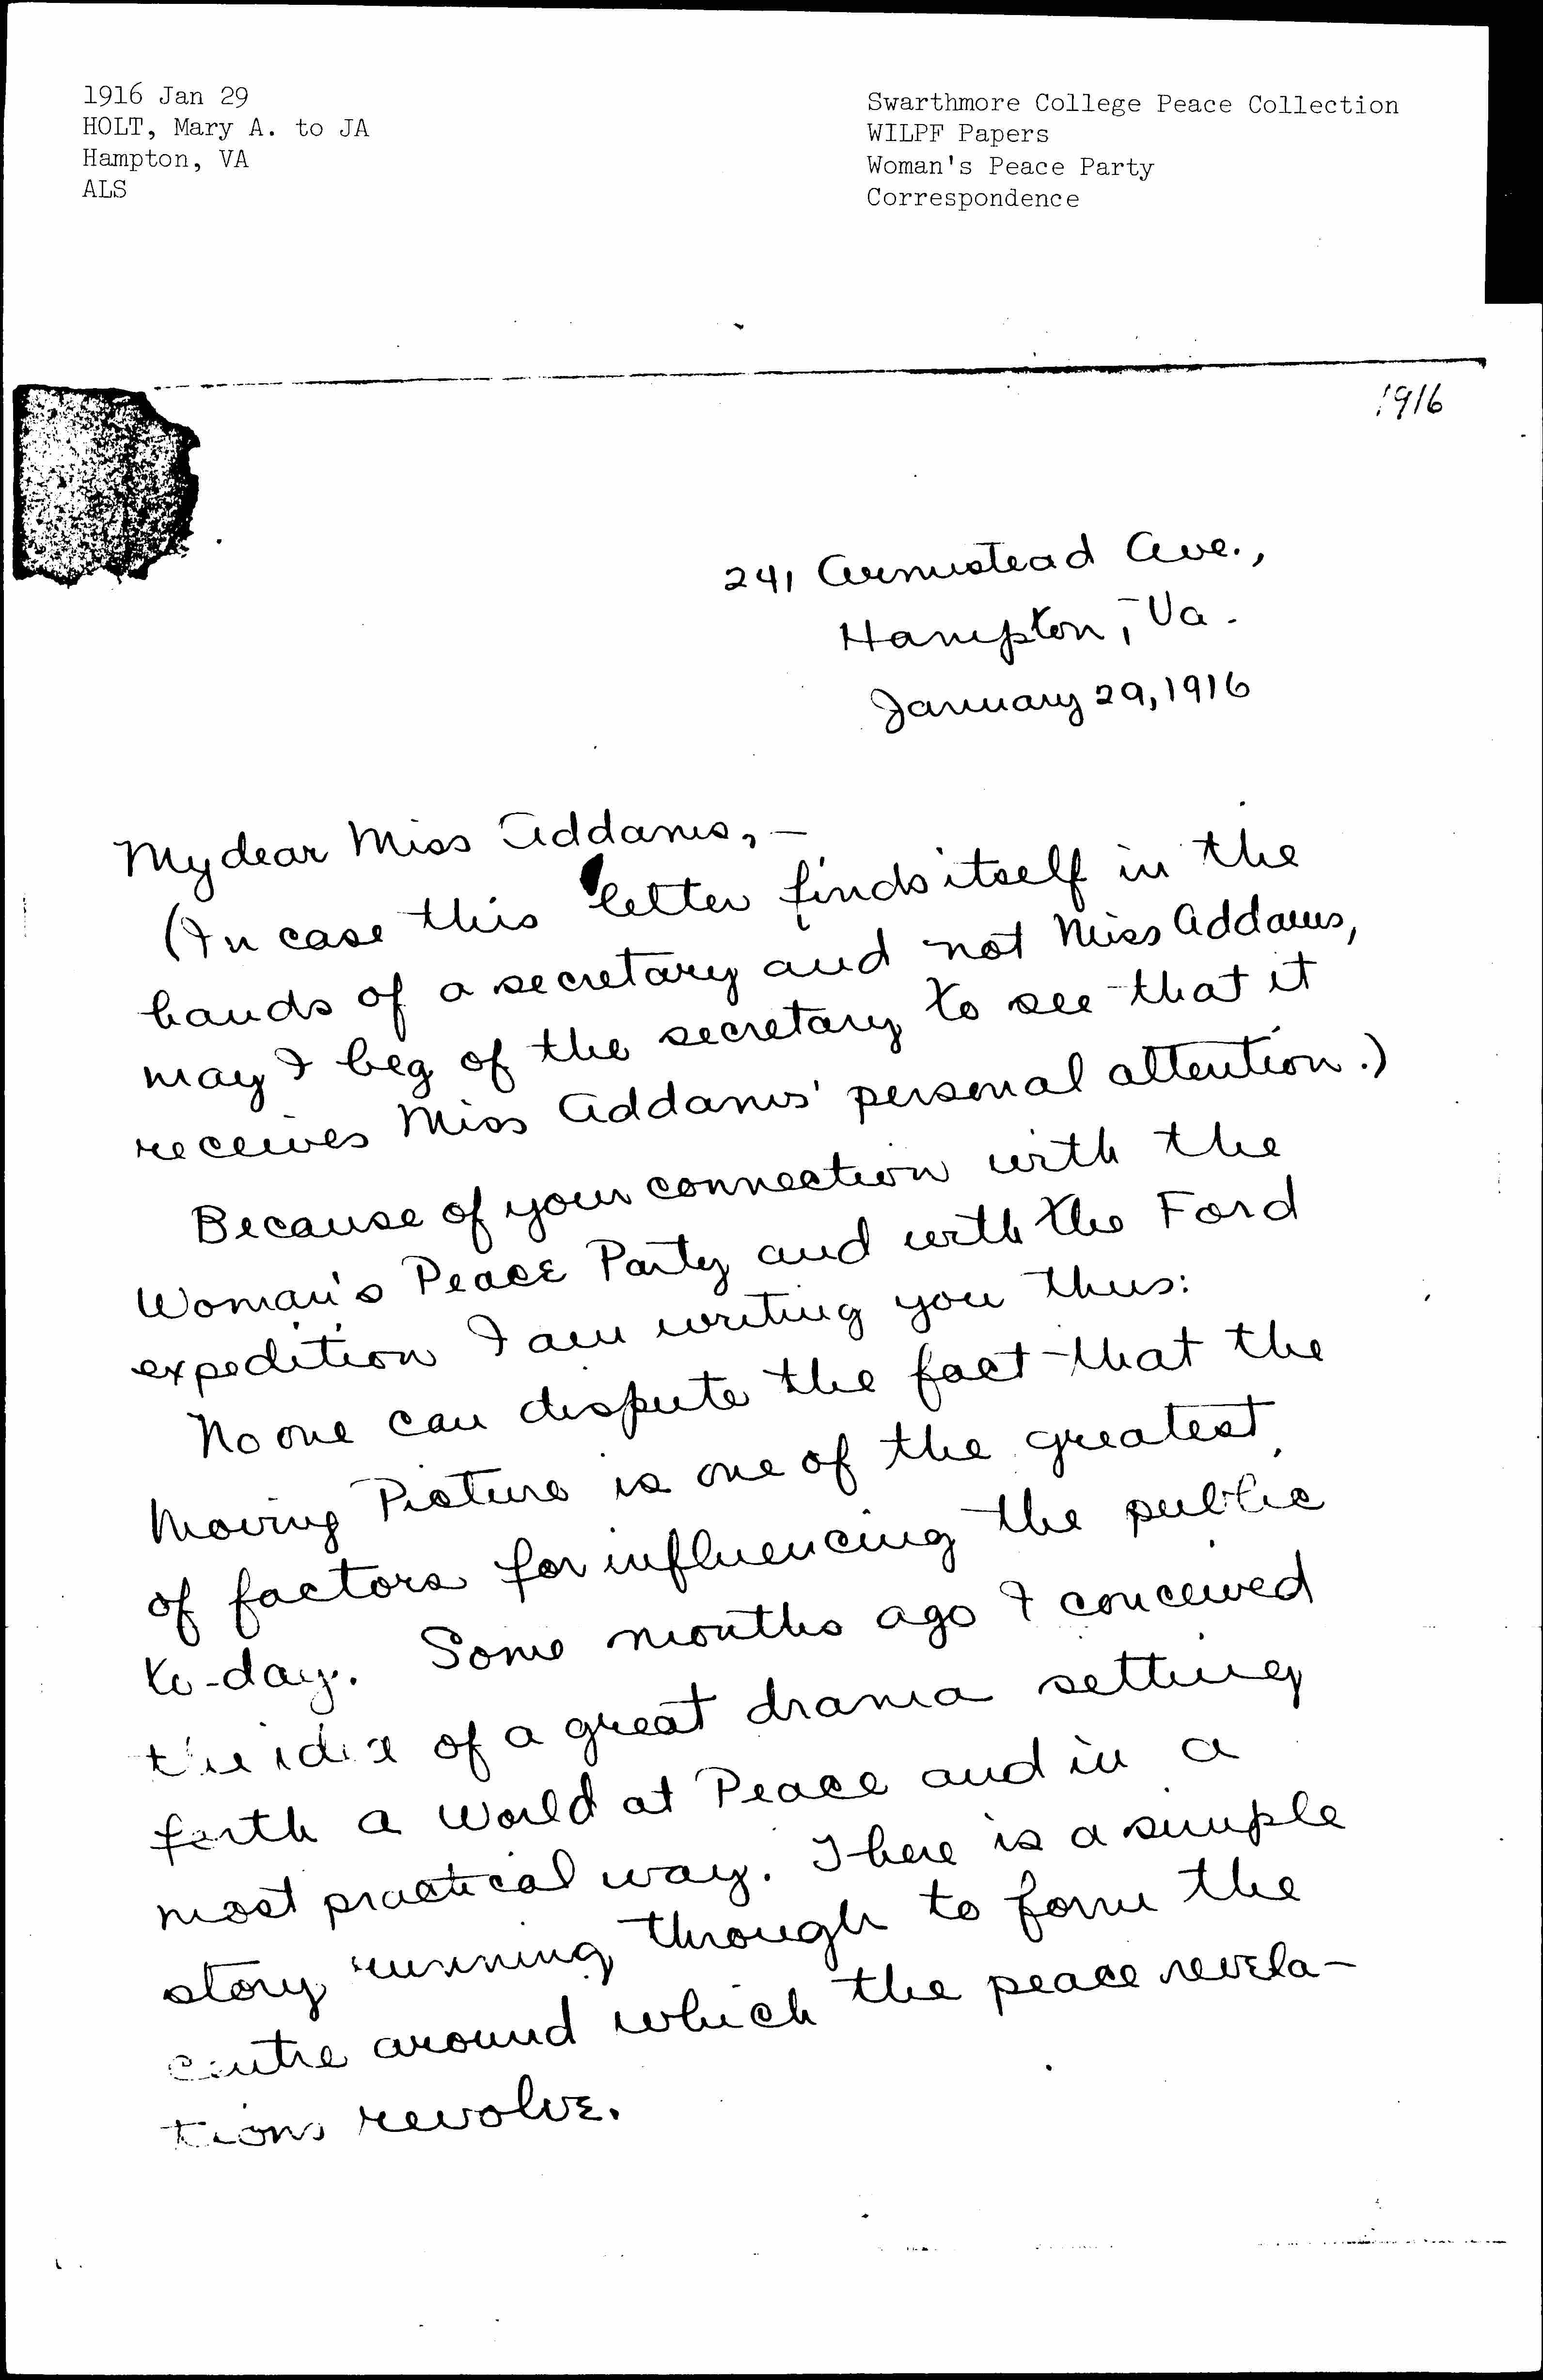 1916 Jan 29
HOLT, Mary A. to JA
Hampton, VA
ALS
Swarthmore College Peace Collection
WILPF Papers
Woman's Peace Party
Correspondence
1916
241 Armistead Ave.,
Hampton, Va.
January 29, 1916
My dear Miss Addams, —
(In case this letter finds itself in the
hands of a secretary and not Miss Addams,
may I beg of the secretary to see that it
receives Miss Addams' personal attention.)
Because of your connection with the
Woman's Peace Party and with the Ford
expedition I am writing you thus:
No one can dispute the fact that the
Moving Picture is one of the greatest
of factors for influencing the public
to-day. Some months ago I conceived
the idea of a great drama setting
forth a World at Peace and in a
most practical way. There is a simple
story running through to form the
centre around which the peace revela-
tions revolve.